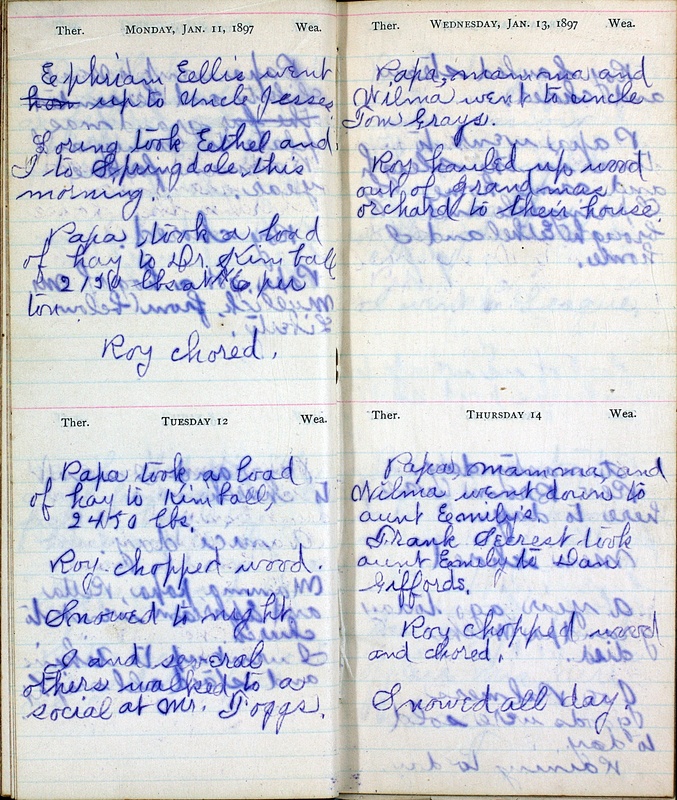 Ther. MONDAY, JAN. 11, 1897 Wea.
Eephriam Eellis went
up to Uncle Jesses
Loring took Eethel and
I to Springdale this
morning.
Papa took a load
of hay to Dr. Kimball
2150 lbs at 6 per
ton
Roy chored.
Ther. TUESDAY 12 Wea.
Papa took a load
of hay to Kimball,
2450 lbs.
Roy chopped wood.
Snowed to night
I and several
others walked to a
social at Mr. Foggs.
Ther. WEDNESDAY, JAN. 13, 1897 Wea.
Papa, mamma and
Wilma went to uncle
Tom Grays.
Roy hauled up wood
out of Grandmas
orchard to their house.
Ther. THURSDAY 14 Wea.
Papa, mamma, and
Wilma went down to
aunt Eemily's
Frank Secrest took
aunt Eemily to Dan
Giffords.
Roy chopped wood
and chored.
Snowed all day.